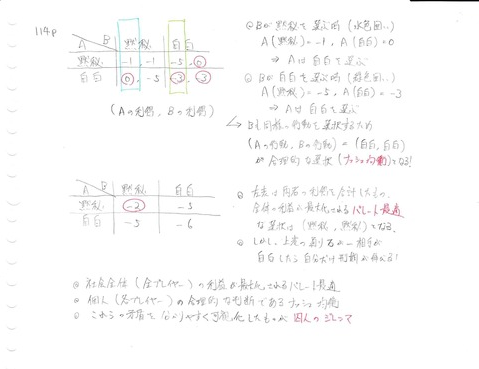 114P
A B 黙秘 自白
黙秘 -1, -1 -5, 0
自白 0, -5 -3, -3
(Aの利得, Bの利得)
Bが黙秘を選ぶ時 (水色囲い)
A(黙秘)=-1, A(自白)=0
⇒ Aは自白を選ぶ
Bが自白を選ぶ時 (緑色囲い)
A(黙秘)=-5, A(自白)=-3
⇒ Aは自白を選ぶ
Bも同様の行動を選択するため
(Aの行動, Bの行動) = (自白, 自白)
が合理的な選択 (ナッシュ均衡) となる!
A B 黙秘 自白
黙秘 -2 -5
自白 -5 -6
左表は両者の利得を合計したもの。
全体の利益が最大化されるパレート最適
な選択は (黙秘, 黙秘) となる。
しかし、上表の通り 相手が
自白したら自分だけ刑期が
社会全体 (全プレイヤー) の利益が最大化されるパレート最適
個人 (各プレイヤー) の合理的な判断であるナッシュ均衡
これらの矛盾を分かりやすく可視化したものが 囚人のジレンマ